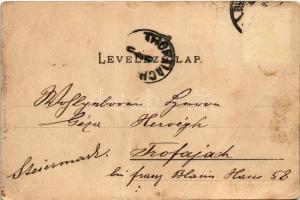 LEVELEZŐ-LAP.
TROFAIACH
Wohlgeboren Herrn
Géza Hervigh
Steiermark.
Trofajach
bei Franz Haus 58